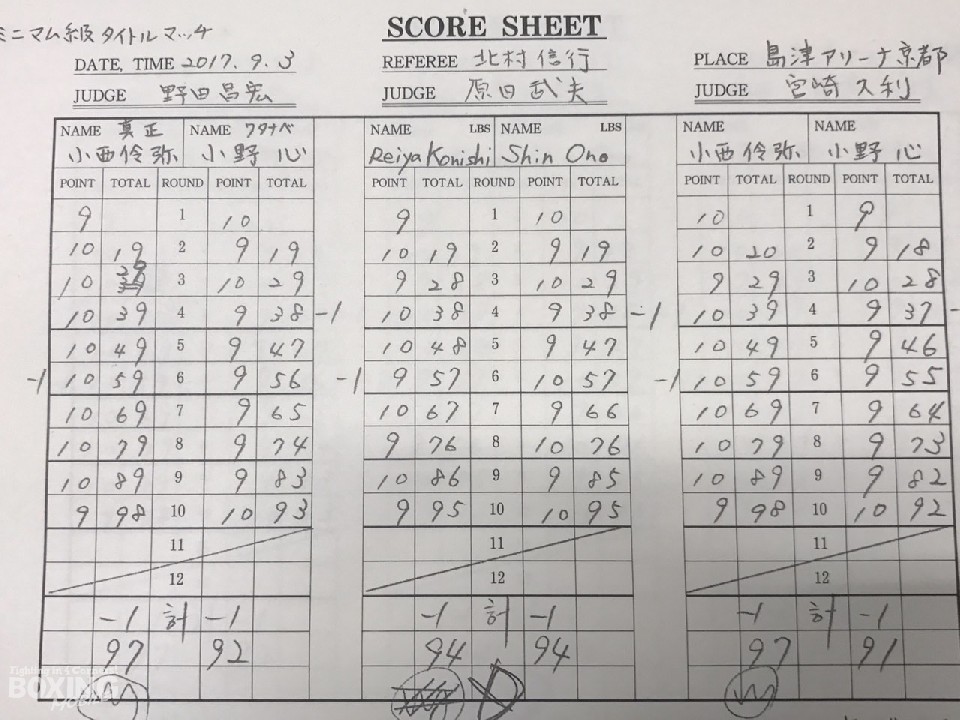 ミニマム級 タイトルマッチ
SCORE SHEET
DATE, TIME 2017. 9. 3 REFEREE 北村信行 PLACE 島津アリーナ京都
JUDGE 野田昌宏 JUDGE 原田武夫 JUDGE 宮崎久利
NAME 真正 NAME ワタナベ NAME LBS NAME LBS NAME NAME
小西伶弥 小野 心 Reiya Konishi Shin Ono 小西伶弥 小野 心
POINT TOTAL ROUND POINT TOTAL POINT TOTAL ROUND POINT TOTAL POINT TOTAL ROUND POINT TOTAL
9 1 10 9 1 10 10 1 9
10 19 2 9 19 10 19 2 9 19 10 20 2 9 18
10 29 3 10 29 9 28 3 10 29 9 29 3 10 28
10 39 4 9 38 -1 10 38 4 9 38 -1 10 39 4 9 37 -
10 49 5 9 47 10 48 5 9 47 10 49 5 9 46
-1 10 59 6 9 56 -1 9 57 6 10 57 -1 10 59 6 9 55
10 69 7 9 65 10 67 7 9 66 10 69 7 9 64
10 79 8 9 74 9 76 8 10 76 10 79 8 9 73
10 89 9 9 83 10 86 9 9 85 10 89 9 9 82
9 98 10 10 93 9 95 10 10 95 9 98 10 10 92
11 11 11
12 12 12
-1 計 -1 -1 計 -1 -1 計 -1
97 92 94 94 97 91
BOXING